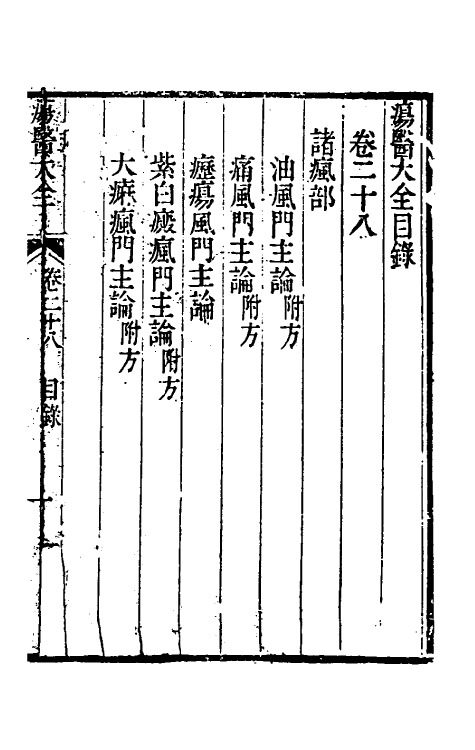 瘍醫大全目錄
卷二十八
諸瘋部
油風門主論附方
痛風門主論附方
癧瘍風門主論
紫白癜瘋門主論附方
大麻瘋門主論附方
瘍醫大全
卷二十八 目錄